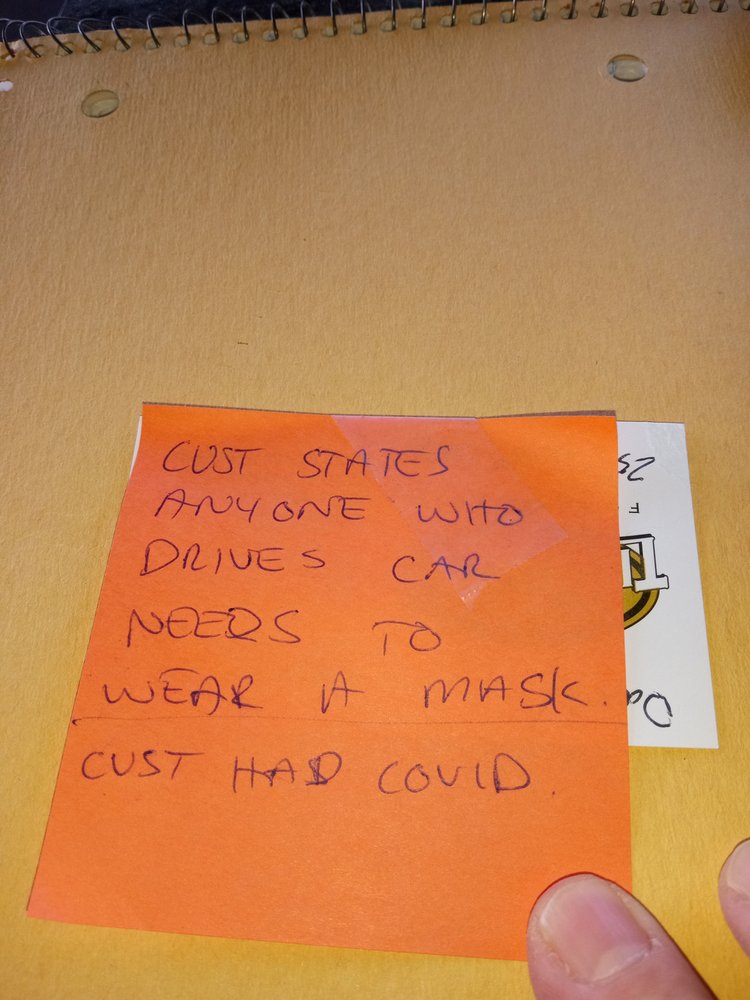 CUST STATES
ANYONE WHO
DRIVES CAR
NEEDS TO
WEAR A MASK.
CUST HAD COVID.